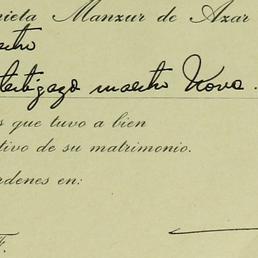 nieta Manzur de Azar
maestro Nova.
s que tuvo a bien
tivo de su matrimonio.
rdenes en:
F.